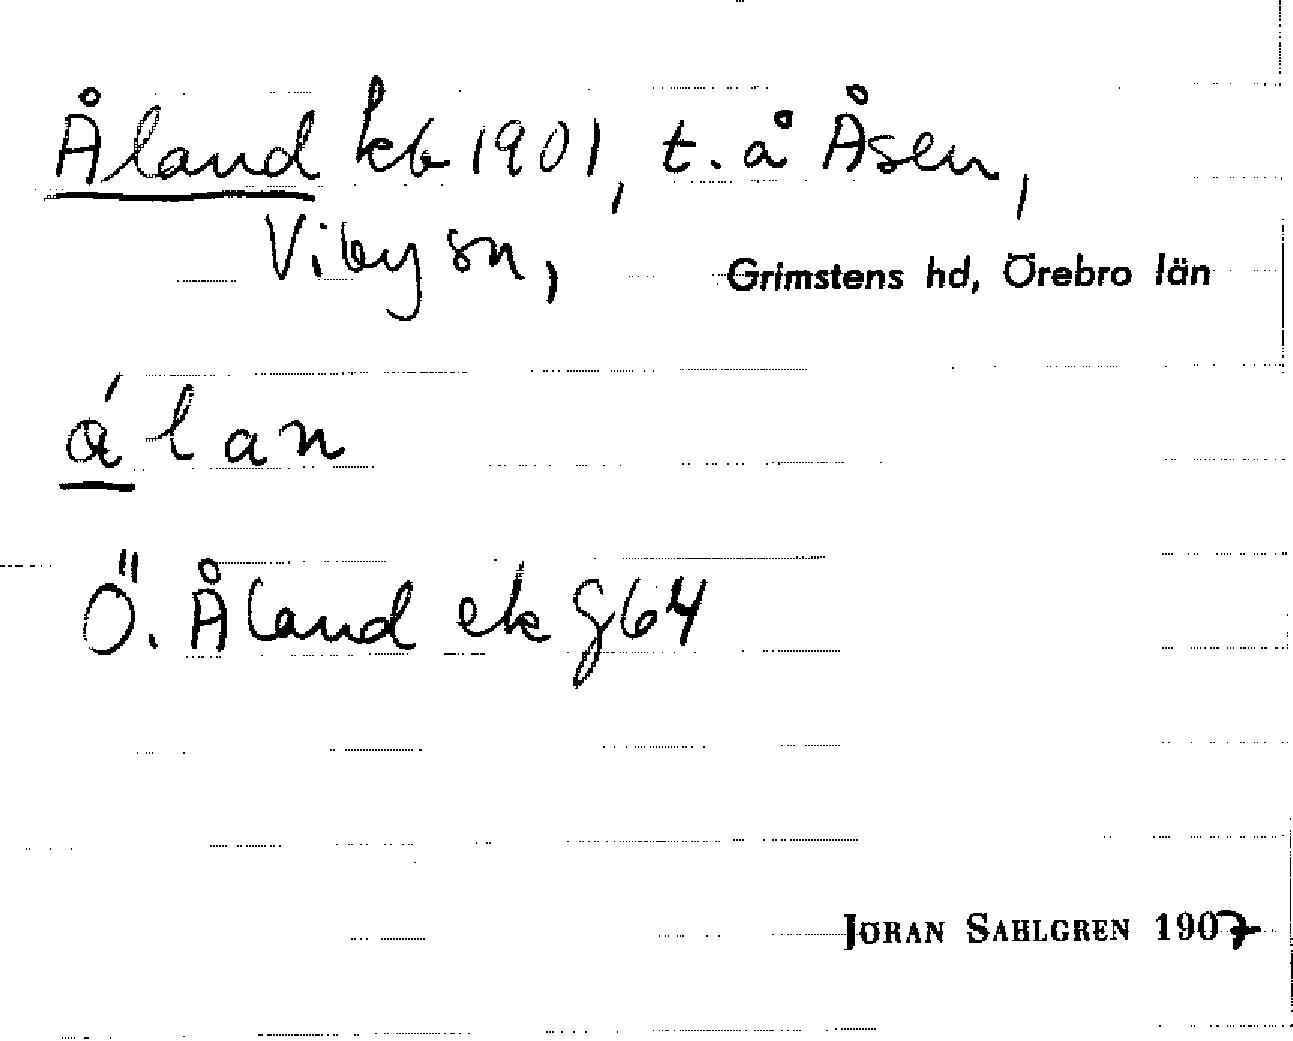 Åland kb 1901, t. å Åsen,
Viby sn, Grimstens hd, Örebro län
á l a n
Ö. Åland ek g 64
JÖRAN SAHLGREN 1907